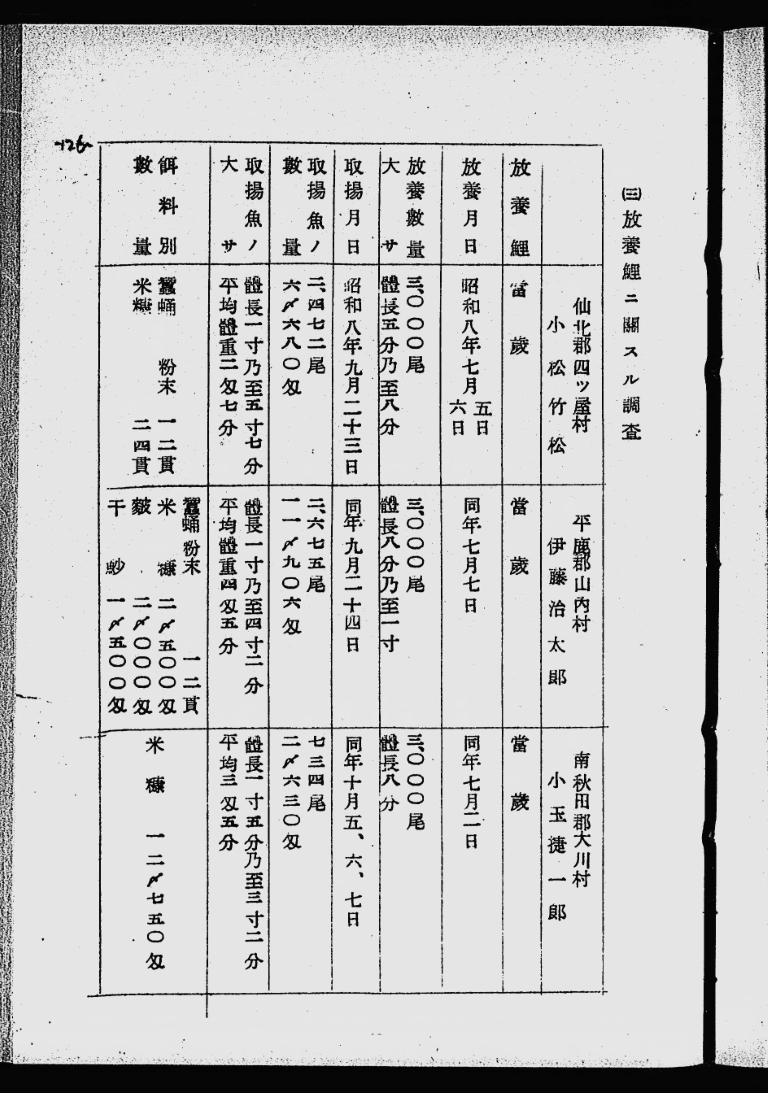 -126-
㈢放養鯉ニ關スル調査
仙北郡四ツ屋村
小松竹松
平鹿郡山內村
伊藤治太郎
南秋田郡大川村
小玉捷一郎
放養鯉
當歲
當歲
當歲
放養月日
昭和八年七月
五日
六日
同年七月七日
同年七月二日
放養數量
大サ
三、〇〇〇尾
體長五分乃至八分
三、〇〇〇尾
體長八分乃至一寸
三、〇〇〇尾
體長八分
取揚月日
昭和八年九月二十三日
同年九月二十四日
同年十月五、六、七日
取揚魚ノ
數量
二、四七二尾
六〆六八〇匁
二、六七五尾
一一〆九〇六匁
七三四尾
二〆六三〇匁
取揚魚ノ
大サ
體長一寸乃至五寸七分
平均體重二匁七分
體長一寸乃至四寸二分
平均體重四匁五分
體長一寸五分乃至三寸二分
平均三匁五分
餌料別
數量
蠶蛹粉末 一二貫
米糠 二四貫
蠶蛹粉末 一二貫
米糠 二〆五〇〇匁
麩 二〆〇〇〇匁
干 一〆五〇〇匁
米糠 一二〆七五〇匁